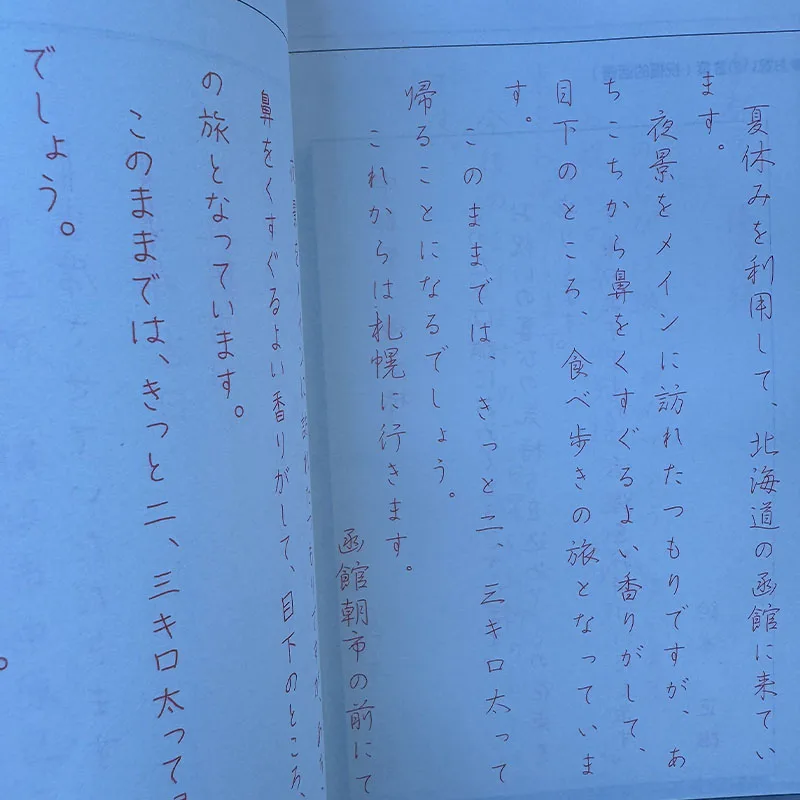 夏休みを利用して、北海道の函館に来てい
ます。
夜景をメインに訪れたつもりですが、あ
ちこちから鼻をくすぐるよい香りがして、
目下のところ、食べ歩きの旅となっていま
す。
このままでは、きっと二、三キロ太って
帰ることになるでしょう。
これからは札幌に行きます。
函館朝市の前にて
鼻をくすぐるよい香りがして、目下のところ、
の旅となっています。
このままでは、きっと二、三キロ太って
でしょう。
。